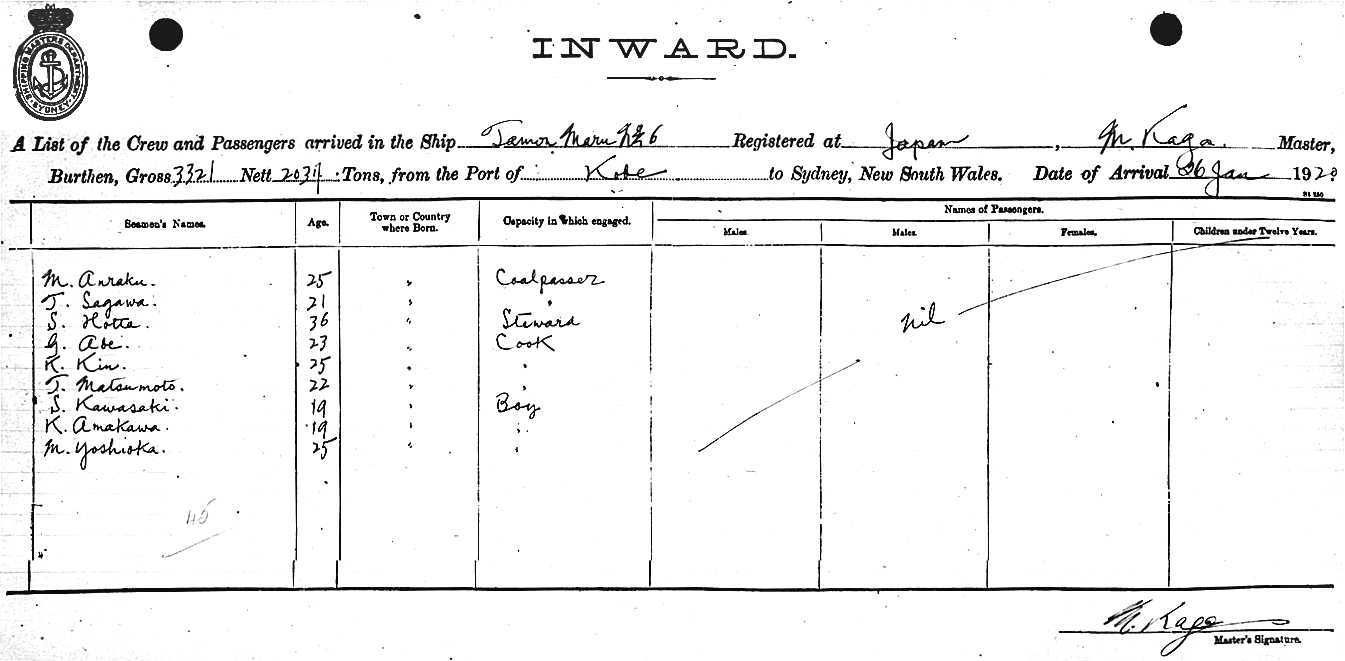 SHIPPING MASTERS DEPARTMENT SYDNEY
INWARD.
A List of the Crew and Passengers arrived in the Ship Tamon Maru No 6 Registered at Japan, M. Kaga. Master,
Burthen, Gross 3321 Nett 2034 Tons, from the Port of Kobe to Sydney, New South Wales. Date of Arrival 26 Jan 1920
Names of Passengers.
Seamen's Names. Age. Town or Country where Born. Capacity in which engaged. Males. Males. Females. Children under Twelve Years.
M. Anraku. 25 " Coalpasser
T. Sagawa. 21 " "
S. Hotta. 36 " Steward
nil
G. Abe. 23 " Cook
K. Kin. 25 " "
T. Matsumoto. 22 " "
S. Kawasaki. 19 " Boy
K. Amakawa. 19 " "
M. Yoshioka. 25 " "
45
M. Kaga
Master's Signature.